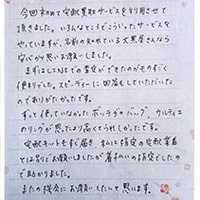 今回初めて宅配買取サービスを利用させて
頂きました。いろんなところでこういったサービスを
やっていますが、名前の知れている大黒屋さんなら
安心かと思いお願いしました。
まずはLINEでの査定ができたのがものすごく
便利でした。スピーディーに回答もしていただいた
のでありがたかったです。
ずっと使っていなかったボッテガのバッグ、カルティエ
のリングが思ったより高くてうれしかったです。
宅配キットもすぐ届き、私は指定の宅配業者
では別でお願いしましたが着払いの指定をしたの
で助かりました。
またの機会にお願いしたいと思います。